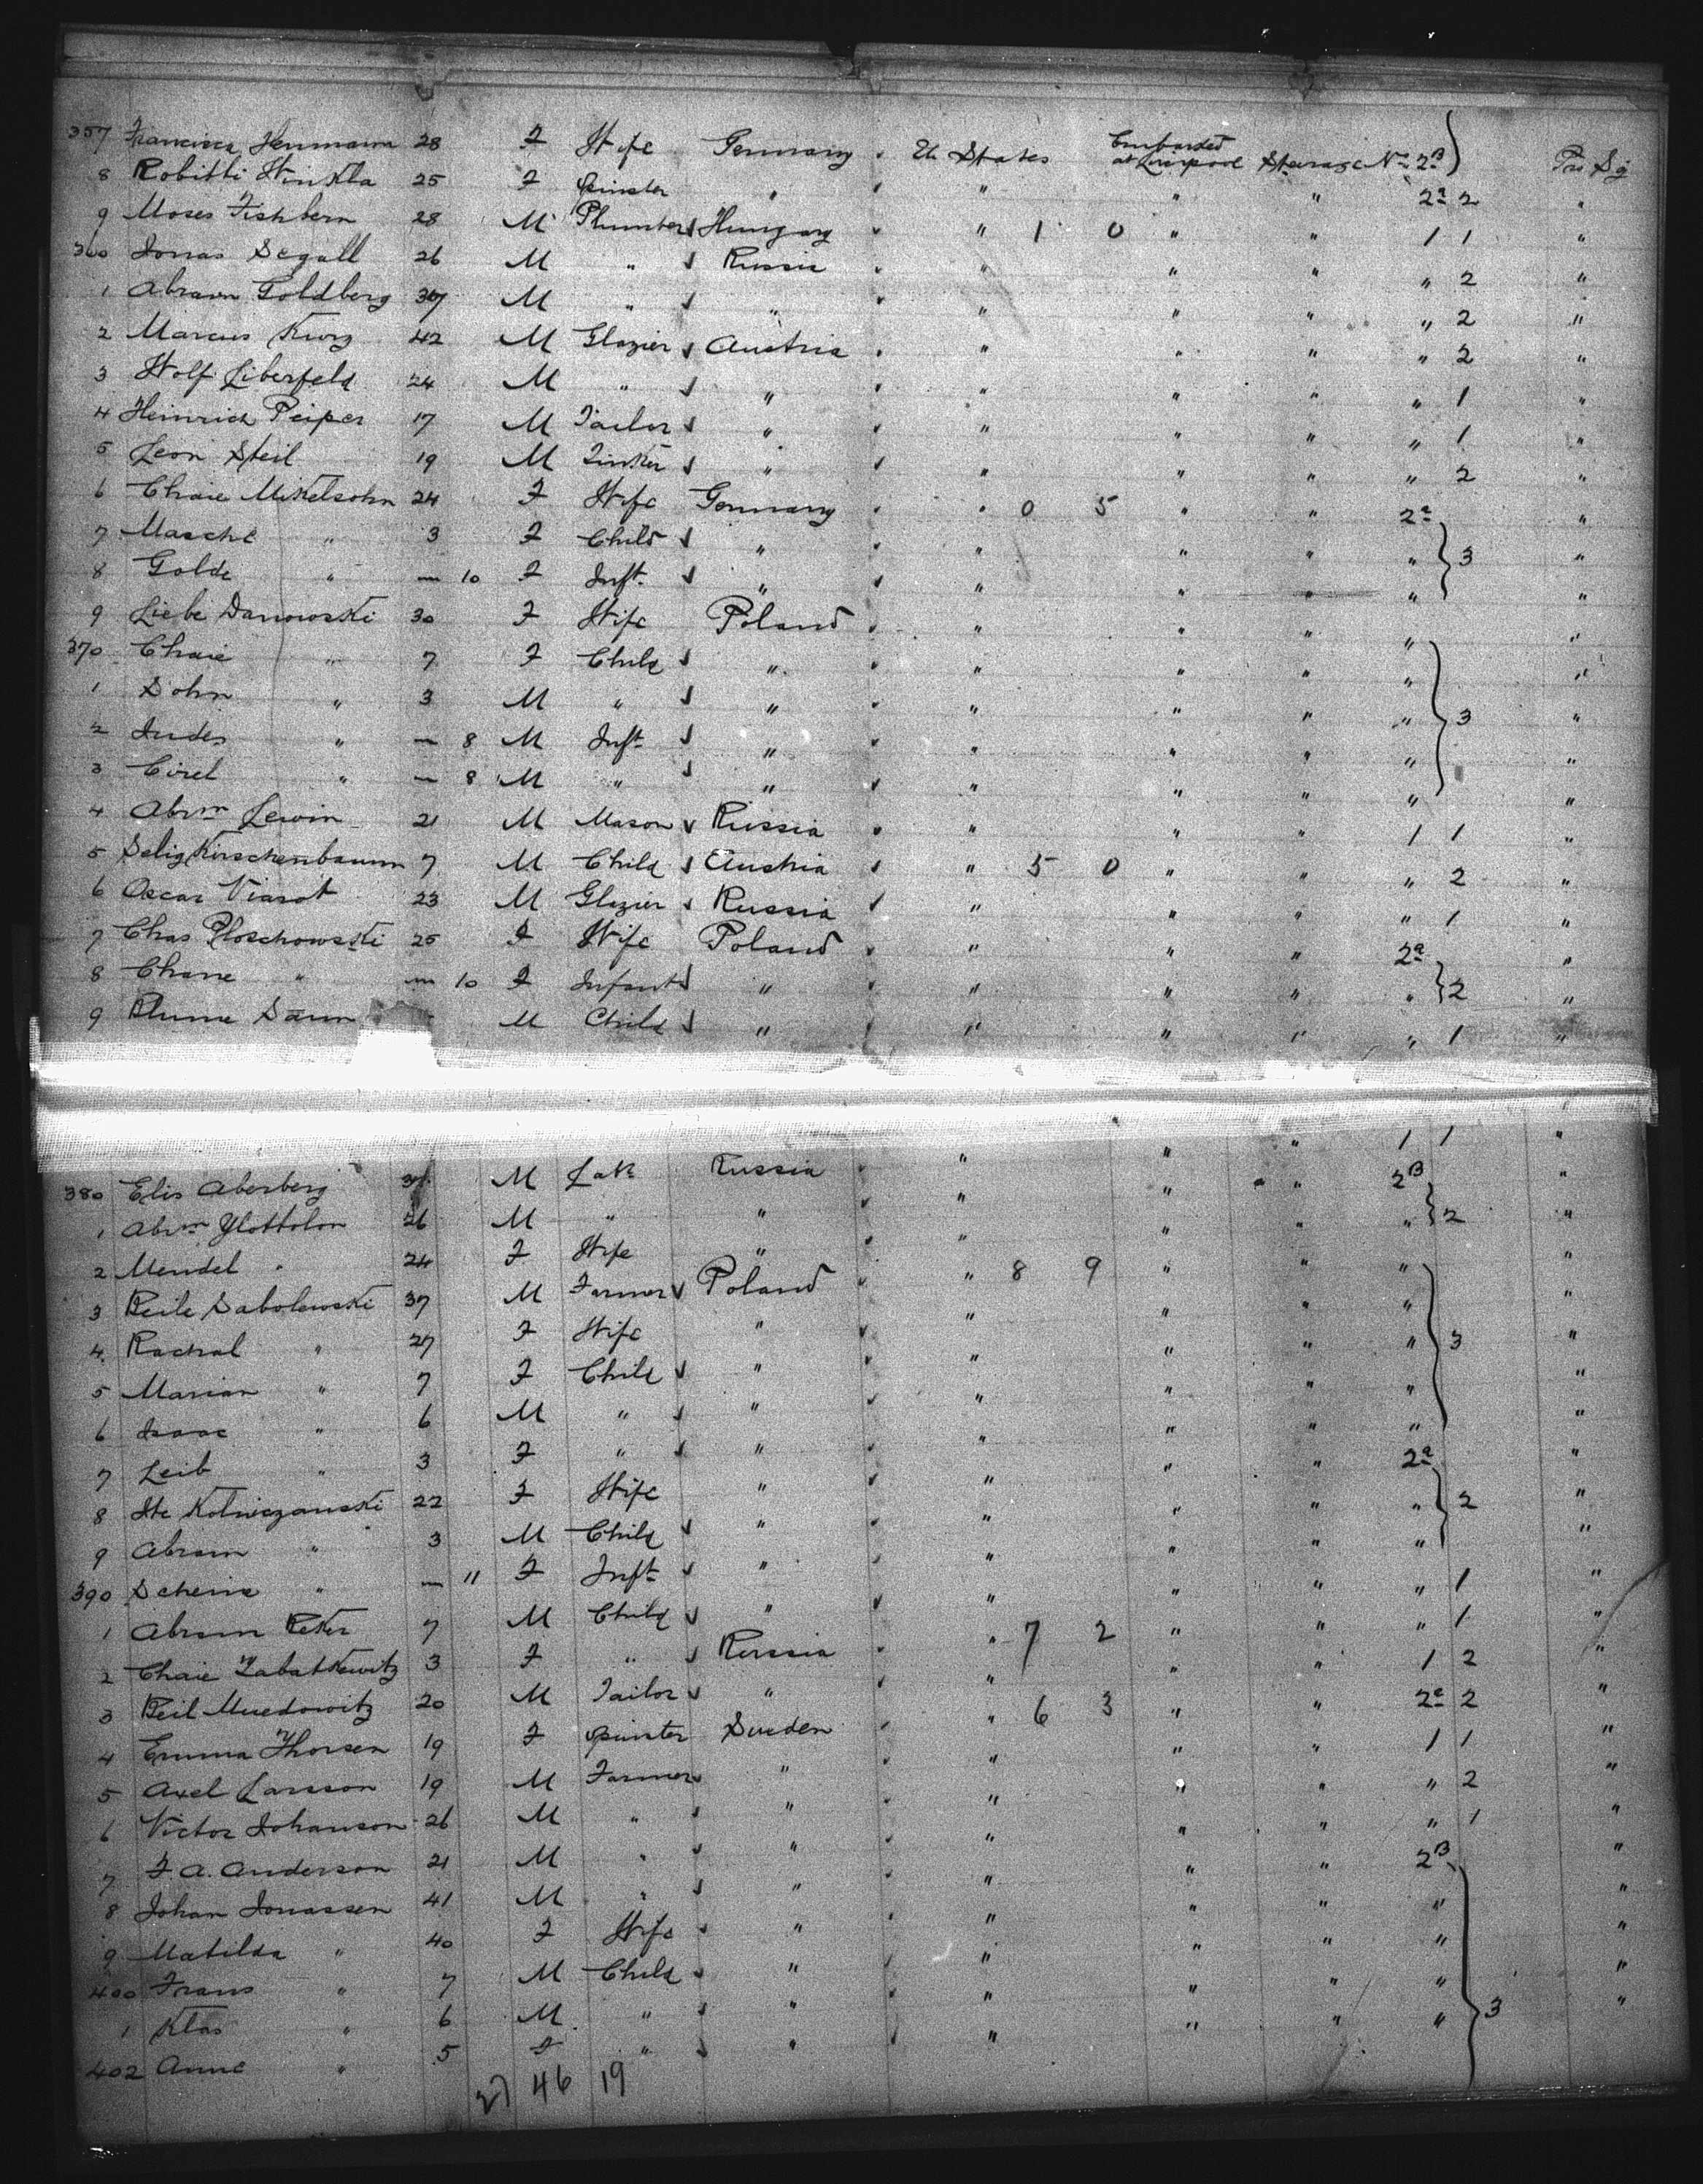 357 Francisca Hermann 28 F Wife Germany U. States Embarked at Liverpool Steerage No 2B Pro Sj
8 Robitti Winkla 25 F Spinster " " " " 2a 2 "
9 Moses Fishbern 28 M Plumber Hungary " 1 0 " " 1 1 "
360 Jonas Segall 26 M " Russia " " " " 2 "
1 Abram Goldberg 37 M " " " " " " 2 "
2 Marcus Kurz 42 M Glazier Austria " " " " 2 "
3 Wolf Liberfeld 24 M " " " " " " 1 "
4 Heinrich Peiper 17 M Tailor " " " " " 1 "
5 Leon Steil 19 M Tinker " " " " " 2 "
6 Chaie Mikelsohn 24 F Wife Germany " 0 5 " " 2a "
7 Masche " 3 F Child " " " " " 3 "
8 Golde " — 10 F Inft " " " " " "
9 Liebe Danowski 30 F Wife Poland " " " " "
370 Chaie " 7 F Child " " " " " "
1 John " 3 M " " " " " " 3 "
2 Judes " — 8 M Inft " " " " " "
3 Cirel " — 8 M " " " " " " "
4 Abrm Lewin 21 M Mason Russia " " " 1 1 "
5 Selig Kirschenbaum 7 M Child Austria " 5 0 " " " 2 "
6 Oscar Viarot 23 M Glazier Russia " " " " 1 "
7 Chas Ploschowski 25 F Wife Poland " " " 2a "
8 Chane " — 10 F Infant " " " " " 2 "
9 Blume M Child " " " " " 1 "
" " " 1 1 "
380 Elis Aberberg M Lab Russia " " " 2B "
1 Abrm 26 M " " " " " " 2 "
2 Mendel " 24 F Wife " " 8 9 " " " "
3 Beile Sabolewski 37 M Farmer Poland " " " " "
4 Rachal " 27 F Wife " " " " " 3 "
5 Marian " 7 F Child " " " " " "
6 Isaac " 6 M " " " " " " "
7 Leib " 3 F " " " " " 2a "
8 Ite Kolniczanski 22 F Wife " " " " " 2 "
9 Abram " 3 M Child " " " " " "
390 Scheine " — 11 F Inft " " " " " 1 "
1 Abram Reker 7 M Child " " 7 2 " " " 1 "
2 Chaie Zabatkewitz 3 F " Russia " " " 1 2 "
3 Beil Muedowitz 20 M Tailor " " 6 3 " " 2a 2 "
4 Emma Thorsen 19 F Spinster Sweden " " " 1 1 "
5 Axel Larsson 19 M Farmer " " " " " 2 "
6 Victor Johanson 26 M " " " " " " 1 "
7 F. A. Anderson 21 M " " " " " 2B "
8 Johan Jonassen 41 M " " " " " " "
9 Matilda " 40 F Wife " " " " " "
400 Frans " 7 M Child " " " " " "
1 Klas " 6 M " " " " " " 3 "
402 Anne " 5 F " " "
27 46 19